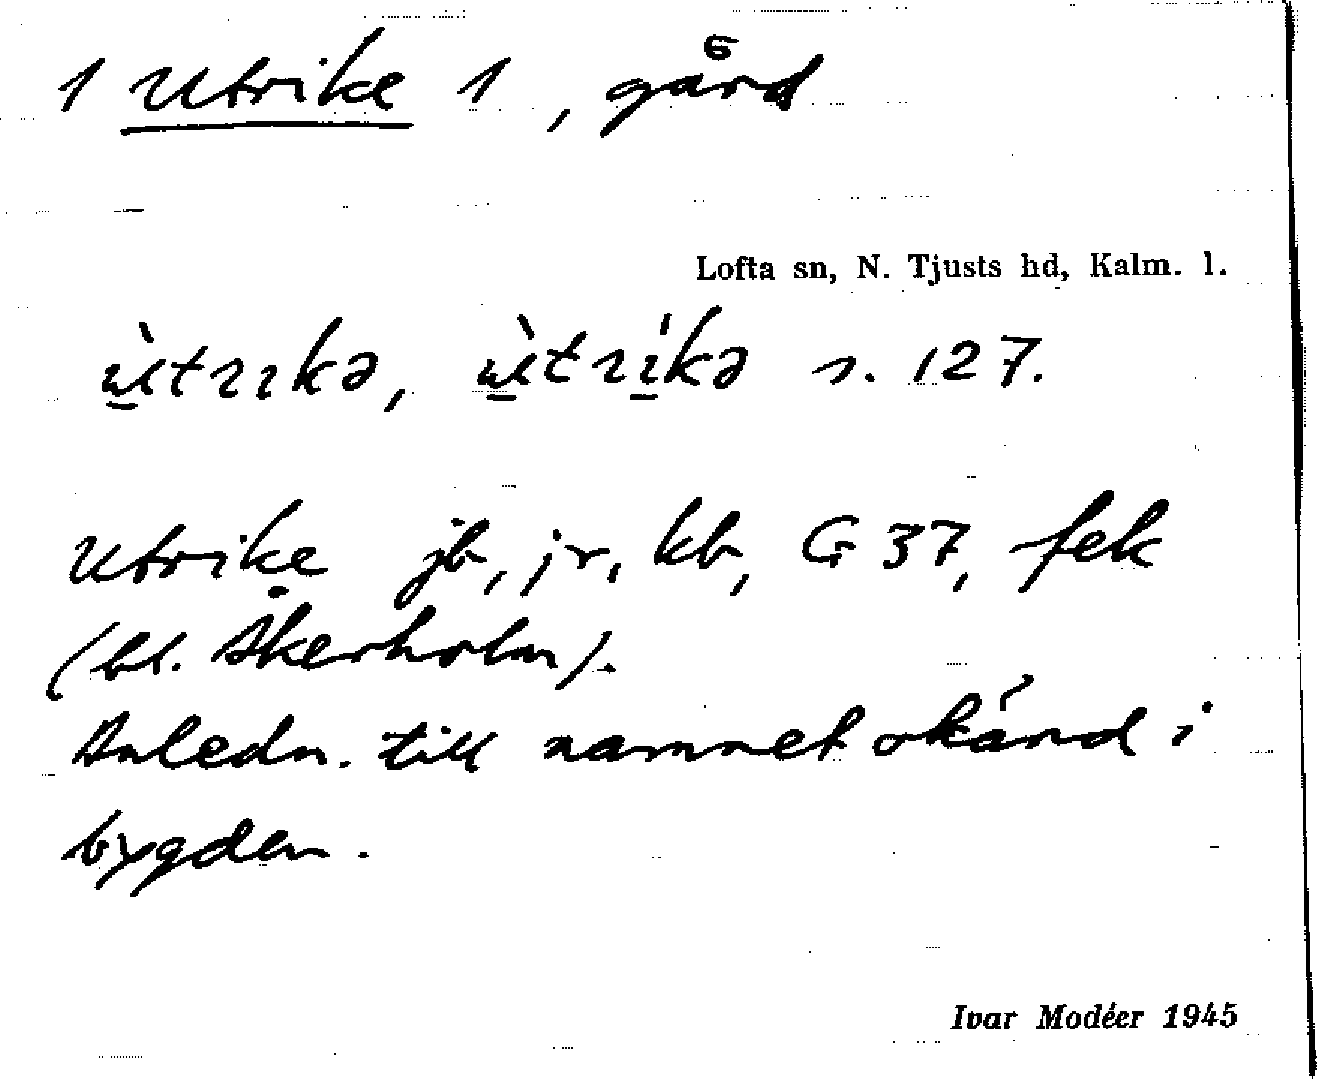 1 Utrike 1, gård
Lofta sn, N. Tjusts hd, Kalm. l.
ùtrıkə, ùtrı́kə s. 127.
Utrike jb, jr, kb, G 37, fek
(bl. Åkerholm).
Anledn. till namnet okänd i
bygden.
Ivar Modéer 1945